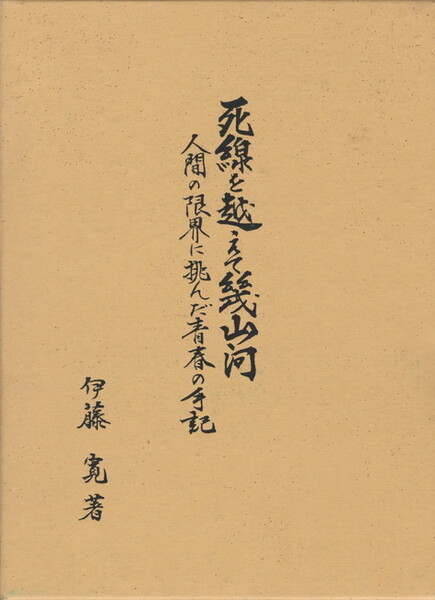 死線を越えて幾山河
人間の限界に挑んだ青春の手記
伊藤寛著